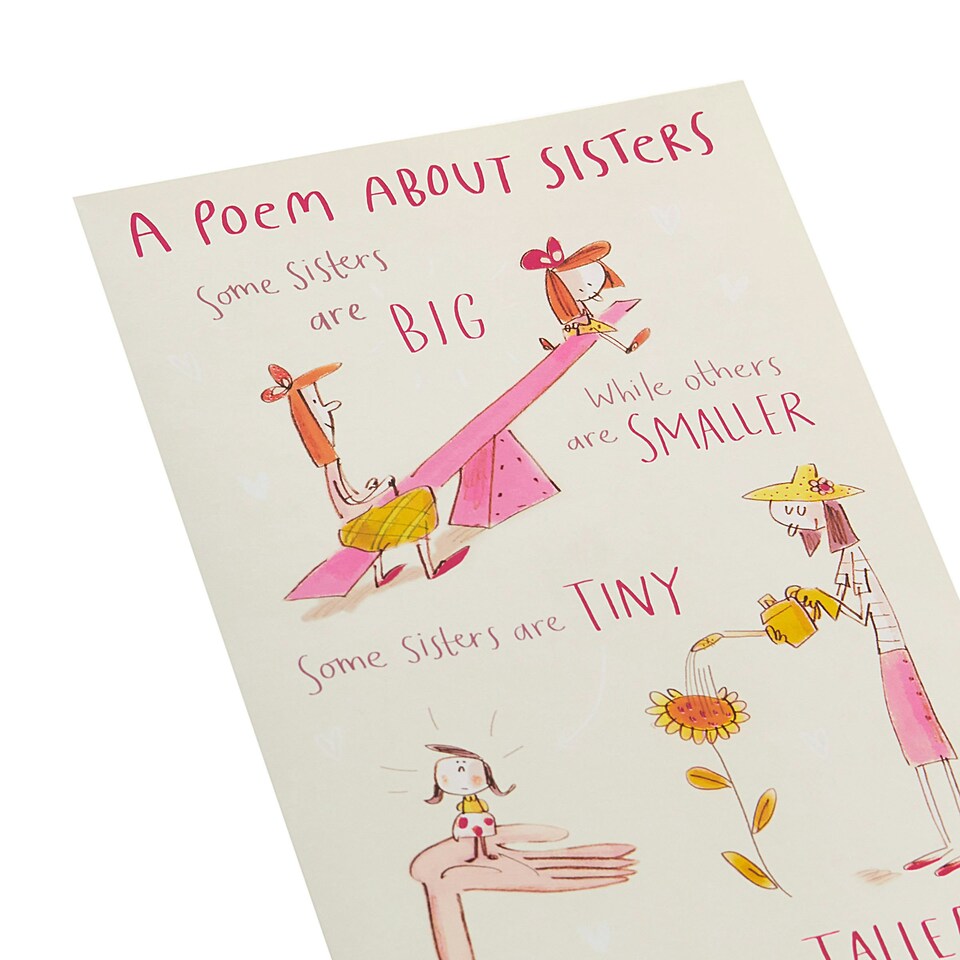 A POEM ABOUT SISTERS
Some Sisters
are BIG
While others
are SMALLER
Some Sisters are TINY